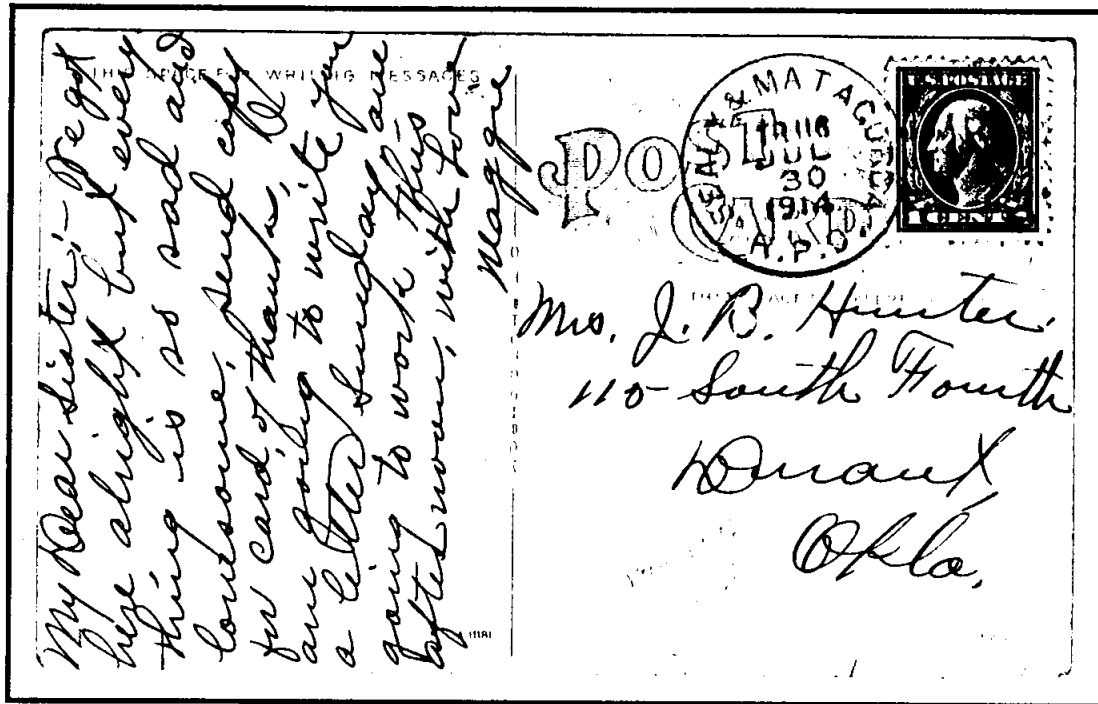 THIS SPACE FOR WRITING MESSAGES
My Dear Sister:- We got
here alright but every
thing is so sad and
lonesome, send copy
for card of thanks, I
am going to write you
a letter Sunday, are
going to work this
afternoon, with love
Magge
POST
CARD
SEALY & MATAGORDA
TR 116
JUL
30
1914
R.P.O.
U.S. POSTAGE
1 CENT 1
Mrs. J. B. Hunter.
110 South Fourth
Durant,
Okla,
11181